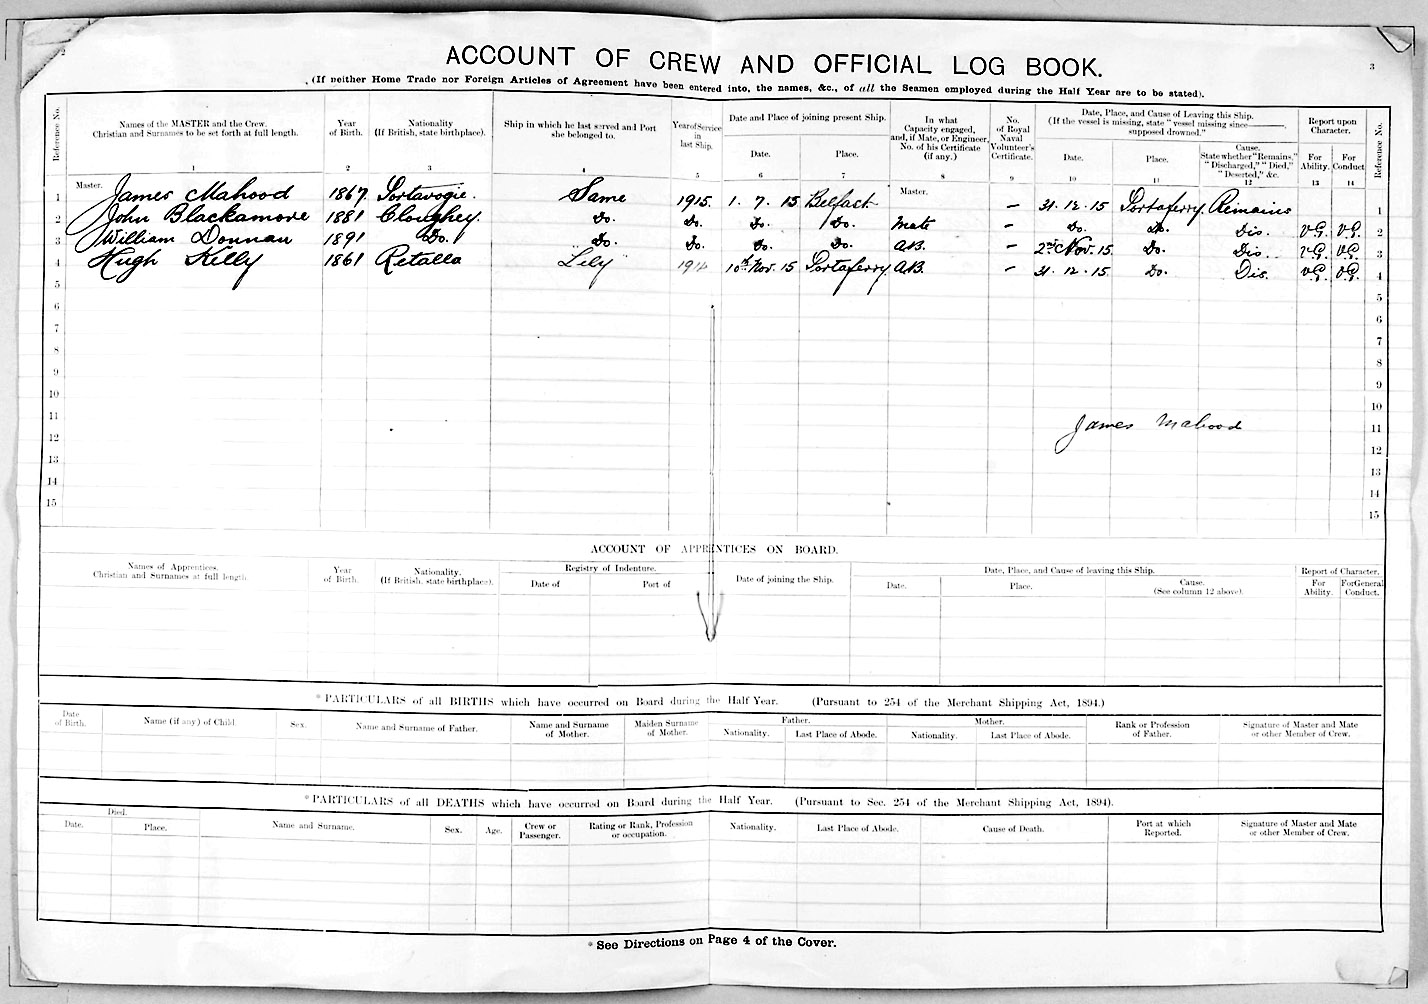 2
3
ACCOUNT OF CREW AND OFFICIAL LOG BOOK.
(If neither Home Trade nor Foreign Articles of Agreement have been entered into, the names, &c., of all the Seamen employed during the Half Year are to be stated).
Reference No.
Names of the MASTER and the Crew.
Christian and Surnames to be set forth at full length.
Year
of Birth.
Nationality
(If British, state birthplace).
Ship in which he last served and Port
she belonged to.
Year of Service
in
last Ship.
Date and Place of joining present Ship.
Date.
Place.
In what
Capacity engaged,
and, if Mate, or Engineer,
No. of his Certificate
(if any.)
No.
of Royal
Naval
Volunteer's
Certificate.
Date, Place, and Cause of Leaving this Ship.
(If the vessel is missing, state "vessel missing since
supposed drowned."
Date.
Place.
Cause.
State whether "Remains,"
"Discharged," "Died,"
"Deserted," &c.
Report upon
Character.
For
Ability.
For
Conduct
Reference No.
1 2 3 4 5 6 7 8 9 10 11 12 13 14
Master.
Master.
1 James Mahood 1867 Portavogie. Same 1915. 1. 7. 15 Belfast — 31. 12. 15 Portaferry Remains 1
2 John Blackamore 1881 Cloughey. Do. Do. Do. Do. Mate — Do. Do. Dis. V.G. V.G. 2
3 William Donnan 1891 Do. Do. Do. Do. Do. A.B. — 2nd Nov. 15. Do. Dis. V.G. V.G. 3
4 Hugh Kelly 1861 Retalla "Lily" 191 10th Nov. 15 Portaferry A.B. — 31. 12. 15. Do. Dis. V.G. V.G. 4
5 5
6 6
7 7
8 8
9 9
10 10
11 James Mahood 11
12 12
13 13
14 14
15 15
ACCOUNT OF APPRENTICES ON BOARD.
Names of Apprentices.
Christian and Surnames at full length
Year
of Birth.
Nationality.
(If British, state birthplace).
Registry of Indenture.
Date of
Port of
Date of joining the Ship.
Date, Place, and Cause of leaving this Ship.
Date.
Place.
Cause.
(See column 12 above).
Report of Character.
For
Ability.
For General
Conduct.
*PARTICULARS of all BIRTHS which have occurred on Board during the Half Year. (Pursuant to 254 of the Merchant Shipping Act, 1894.)
Date
of Birth.
Name (if any) of Child.
Sex.
Name and Surname of Father.
Name and Surname
of Mother.
Maiden Surname
of Mother.
Father.
Nationality.
Last Place of Abode.
Mother.
Nationality.
Last Place of Abode.
Rank or Profession
of Father.
Signature of Master and Mate
or other Member of Crew.
*PARTICULARS of all DEATHS which have occurred on Board during the Half Year. (Pursuant to Sec. 254 of the Merchant Shipping Act, 1894).
Died.
Date.
Place.
Name and Surname.
Sex.
Age.
Crew or
Passenger.
Rating or Rank, Profession
or occupation.
Nationality.
Last Place of Abode.
Cause of Death.
Port at which
Reported.
Signature of Master and Mate
or other Member of Crew.
*See Directions on Page 4 of the Cover.